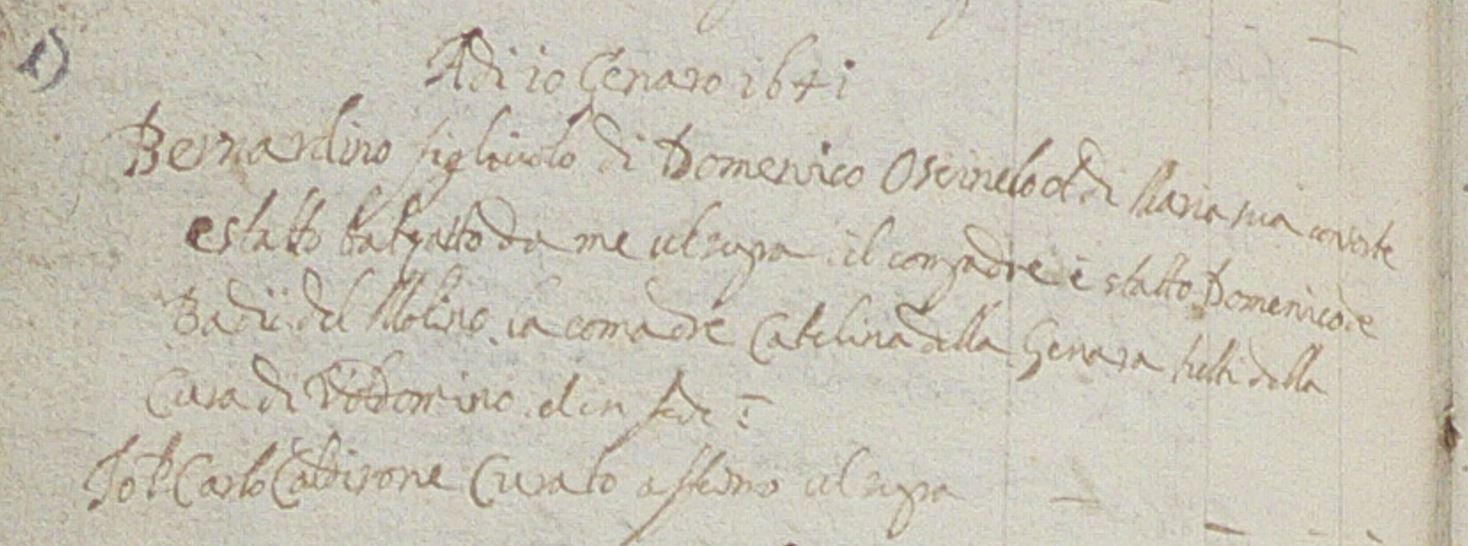 1)
Adi 10 Genaro 1641
Bernardino figliuolo di Domenico Oserinelo et di Maria sua consorte
e statto batezatto da me ut supra il compadre è statto Domenico de
Badii del Molino la comadre Catelina della Genara tutti della
Cura di Vódomino et in fede
Io P. Carlo Cattirone Curato affermo ut supra